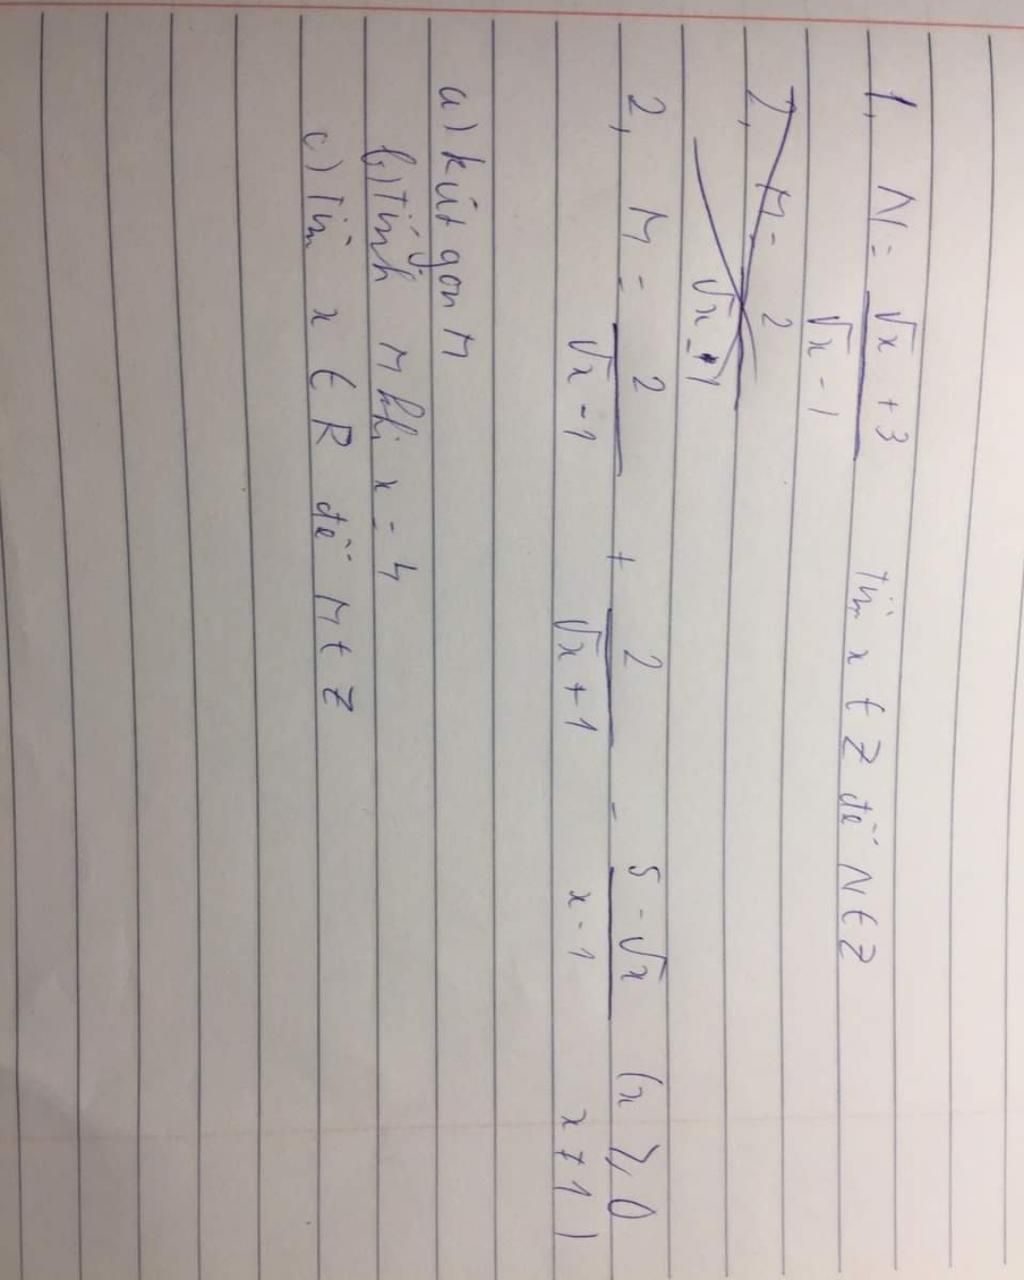 1, N = (√x + 3)/(√x - 1) tìm x ∈ Z để N ∈ Z
2, M = 2/(√x - 1)
2, M = 2/(√x - 1) + 2/(√x + 1) - (5 - √x)/(x - 1) (x ≥ 0
x ≠ 1)
a) Rút gọn M
b) Tính M khi x = 4
c) Tìm x ∈ R để M ∈ Z